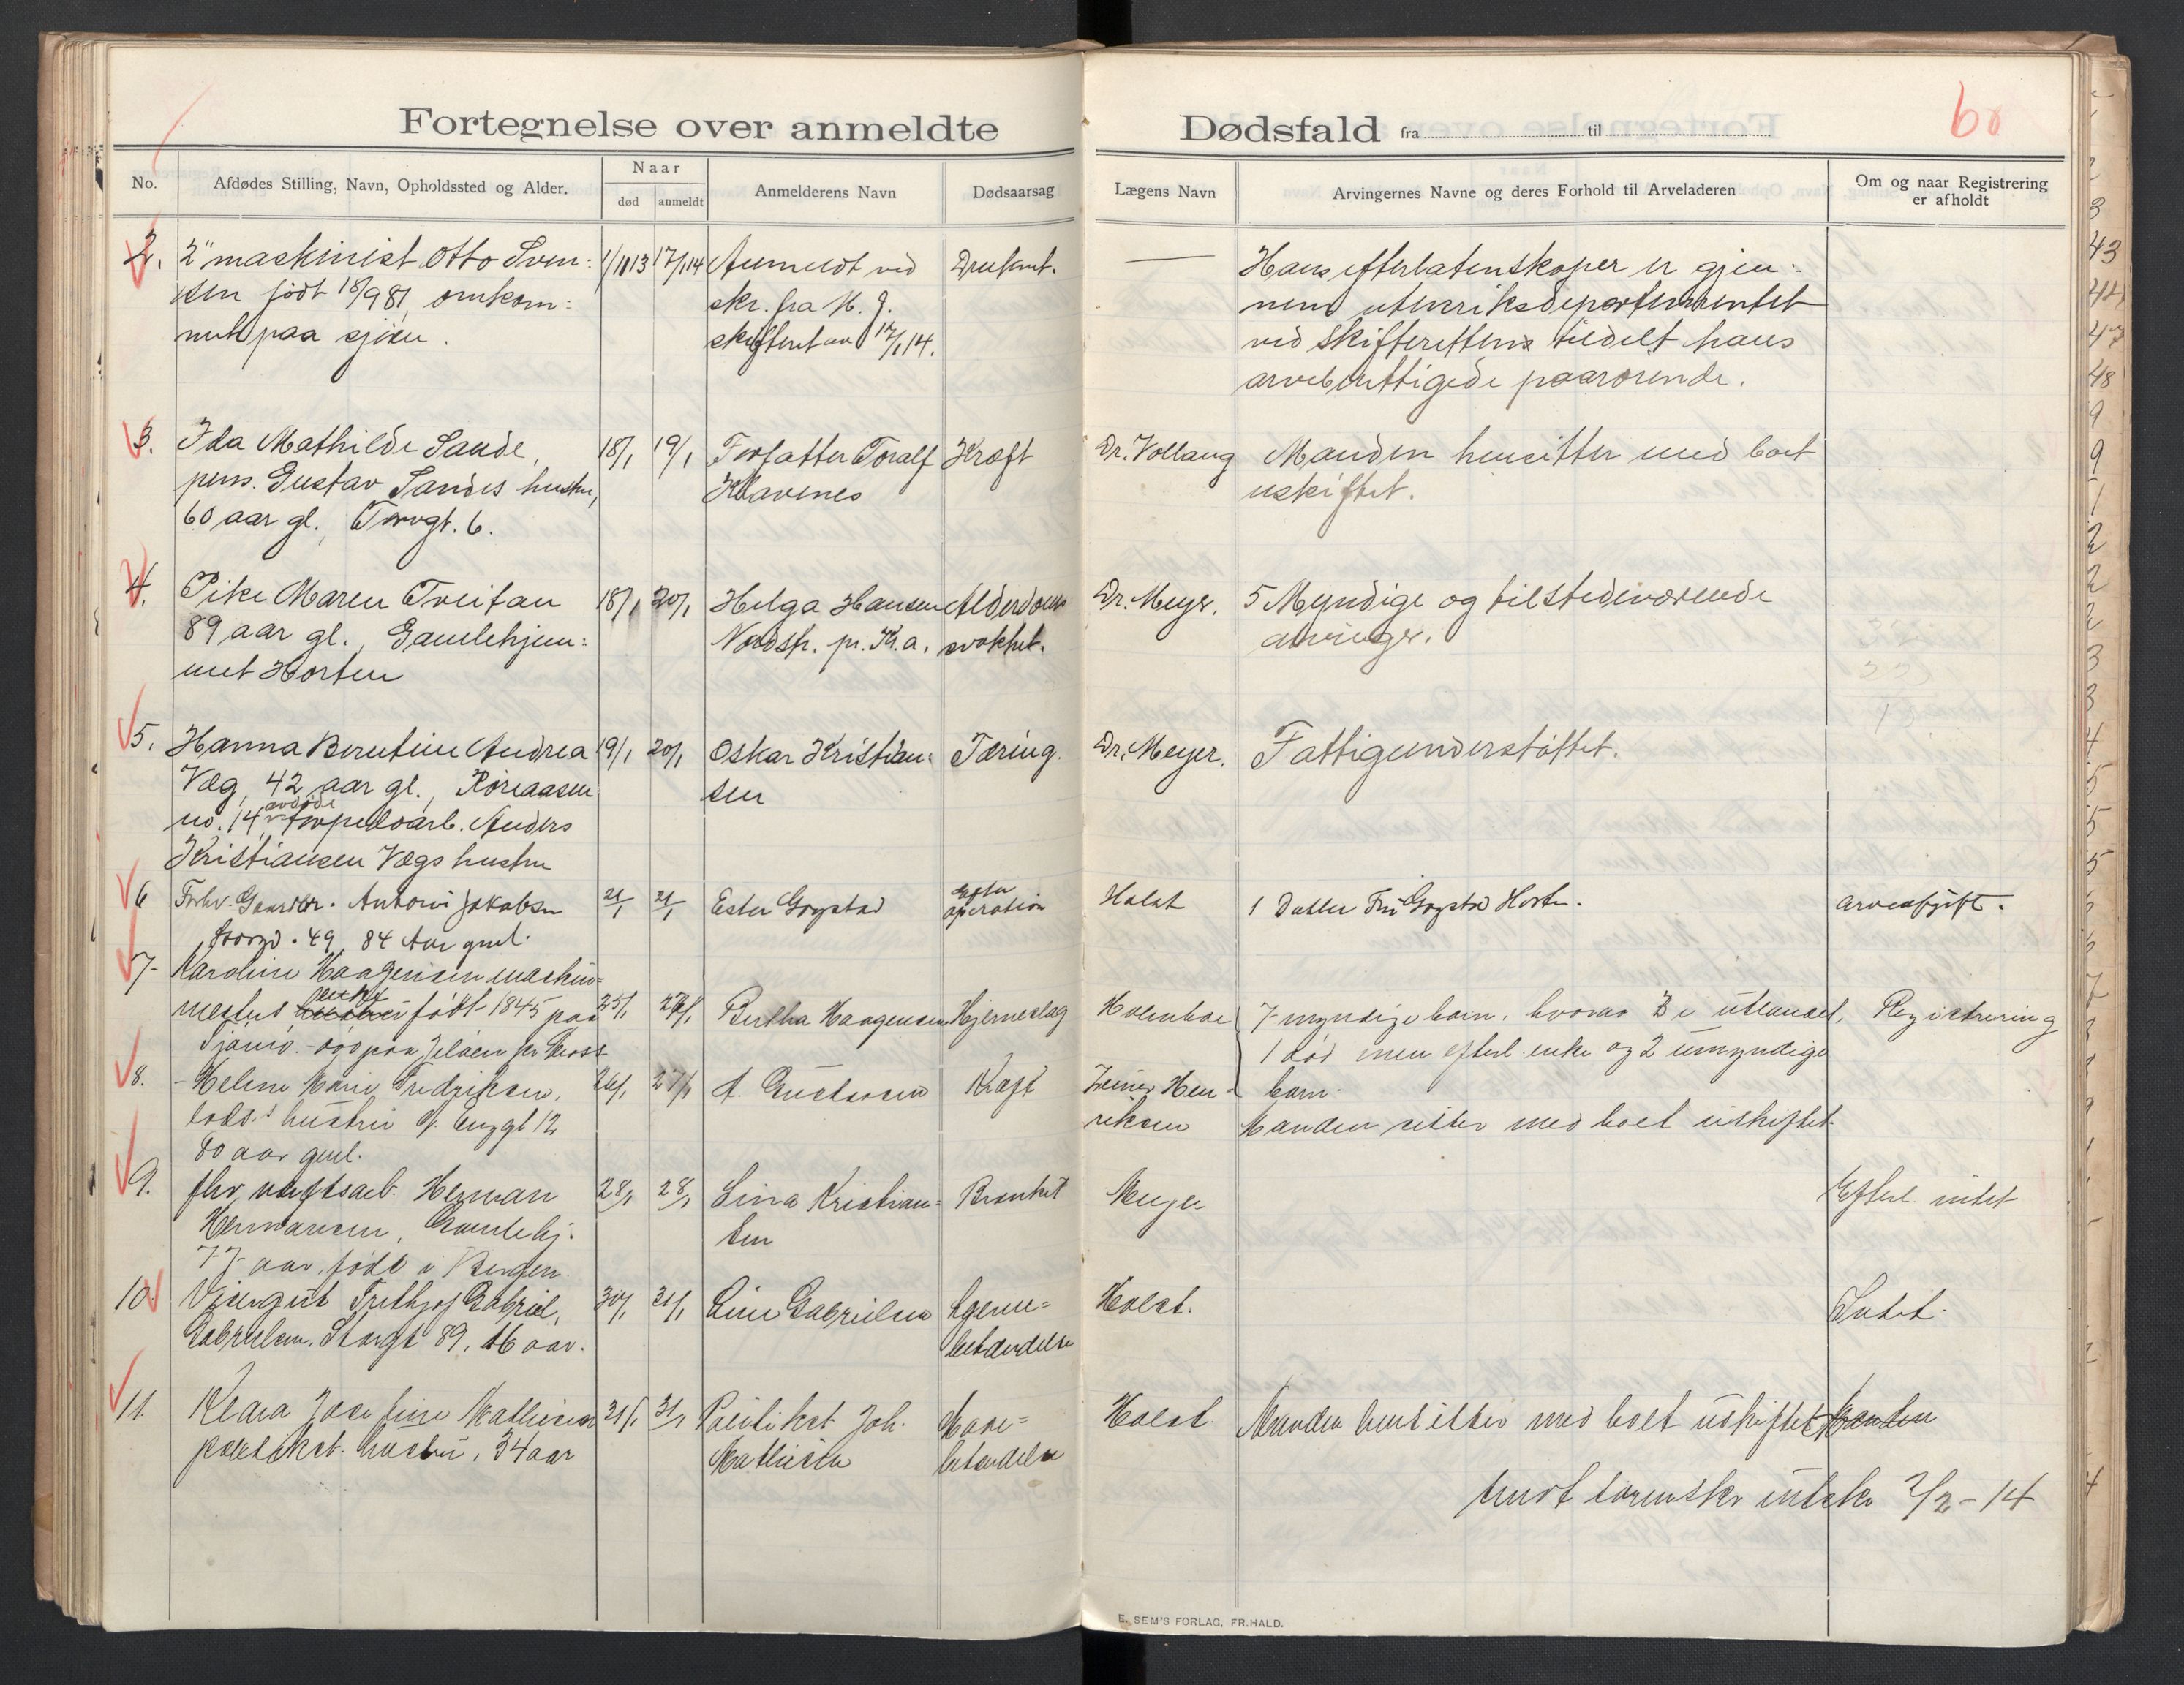 Fortegnelse over anmeldte
Dødsfald fra til
60
No.
Afdødes Stilling, Navn, Opholdssted og Alder.
Naar
død
anmeldt
Anmelderens Navn
Dødsaarsag
Lægens Navn
Arvingernes Navne og deres Forhold til Arveladeren
Om og naar Registrering
er afholdt
2. 2" maskinist Otto Sven= 1/11 13 17/1 14 Anmeldt ved Druknet. —
sen født 18/9 81, omkom=
met paa sjøen.
skr. fra
skifteret av 12/1 14.
Hans efterlatenskaper er gjen=
nem utenriksdepartementet
ved skifterettens tildelt hans
arveberettigede paarørende.
3. Ida Mathilde Sande, 18/1 19/1 Forfatter Toralf Kræft Dr. Vollang Manden hensitter med boet
pens. Gustav Sandes hustru, Klavenes uskiftet.
60 aar gl., Torvgt. 6.
4. Pike Maren Tveitan 18/1 20/1 Helga Hansen Alderdoms Dr. Meyer. 5 Myndige og tilstedeværende
89 aar gl., Gamlehjem= Nordstr. pr. Kr.a. svakhet. arvinger.
met Horten
5. Hanna Berntine Andrea 19/1 20/1 Oskar Kristian= Tæring. Dr. Meyer. Fattigunderstøttet.
Væg, 42 aar gl., Røreaasen sen
no. 14, avdøde torpedoarb. Anders
Kristiansen Vægs hustru
6 Forhv. Gaardbr. Antoni Jakobsen 21/1 21/1 Ester Gogstad Efter operation Holst 1 Datter Fru Gogstad Horten. Arveafgift.
49, 84 Aar gml.
7- Karoline Haagensen maskin=
mesters enke født 1845 paa 25/1 27/1 Bertha Haagensen Hjerneslag Holmboe 7 myndige barn, hvorav 3 i utlandet, Registrering
Tjømø. - død paa Jeløen pr Moss 1 død men efterl. enke og 2 umyndige
barn.
8. Helene Marie Fredriksen, 26/1 27/1 A. Gustavsen Kræft Hen=
lods. hustru Enggt 12 riksen Manden sitter med boet uskiftet.
80 aar gml.
9. fhv. verftsarb. Herman 28/1 28/1 Lina Kristian= Bronkit Meyer Efterl. intet
Hermansen, Gamlehj. sen
77 aar, født i Bergen.
10 Visergut Frithjof Gabriel, 30/1 31/1 Line Gabrielsen Hjerne= Holst. Intet.
Gabrielsen, Storgt 89, 16 aar. betændelse
11. Klara Josefine Mathiesen 31/1 31/1 Politikst Joh. Mave= Holst. Manden hensitter med boet uskiftet Manden
politikst. hustru, 34 aar Mathiesen betændelse
2/2-14
E. SEM'S FORLAG, FR.HALD.